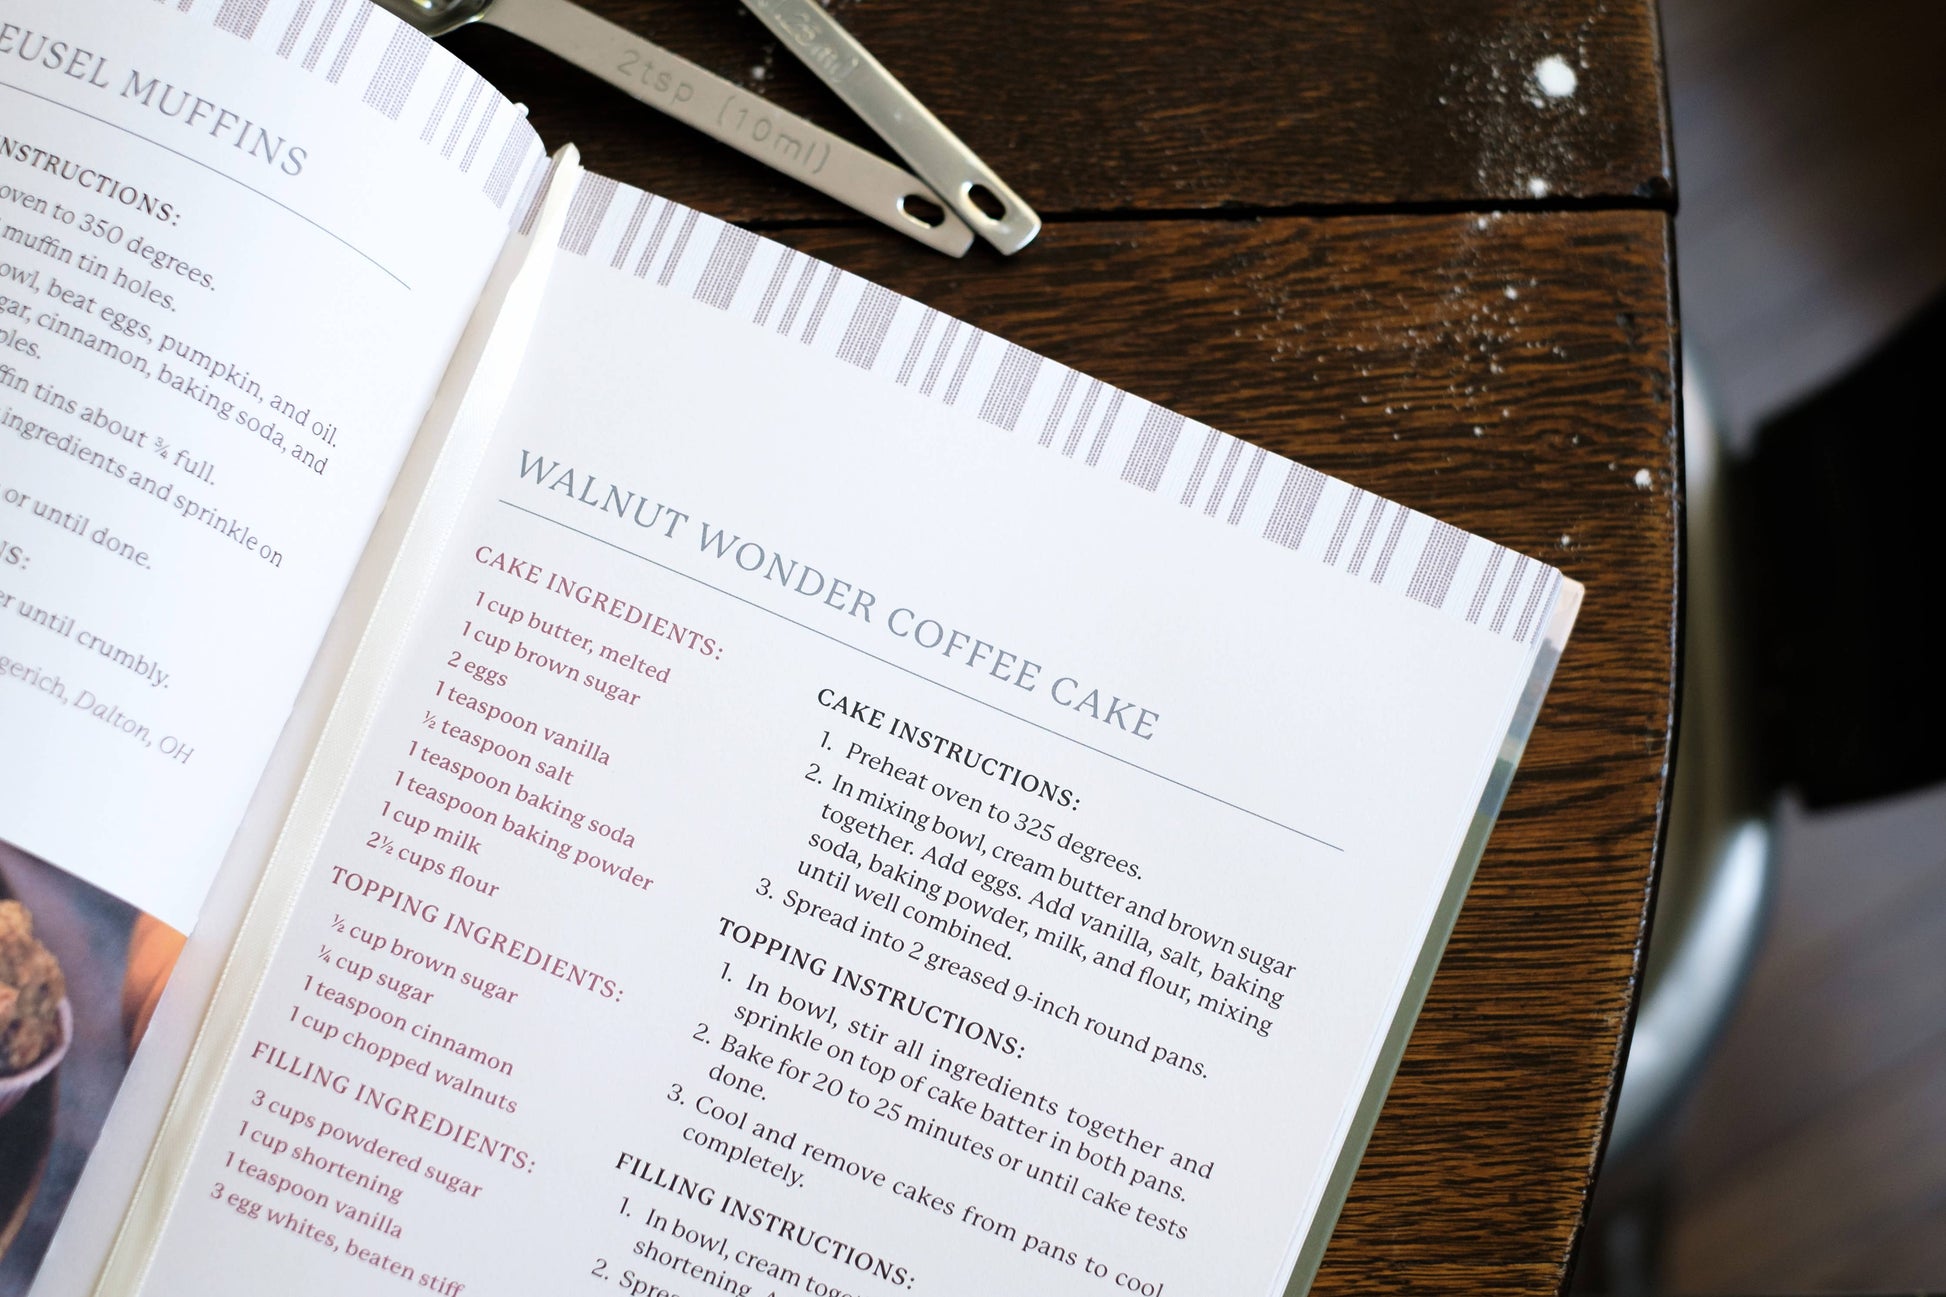 2tsp (10ml)
MUFFINS
oven to 350 degrees.
muffin tin holes.
beat eggs, pumpkin, and oil.
cinnamon, baking soda, and
tins about ¾ full.
ingredients and sprinkle on
or until done.
until crumbly.
Dalton, OH
WALNUT WONDER COFFEE CAKE
CAKE INGREDIENTS:
1 cup butter, melted
1 cup brown sugar
2 eggs
1 teaspoon vanilla
½ teaspoon salt
1 teaspoon baking soda
1 teaspoon baking powder
1 cup milk
2½ cups flour
TOPPING INGREDIENTS:
½ cup brown sugar
¼ cup sugar
1 teaspoon cinnamon
1 cup chopped walnuts
FILLING INGREDIENTS:
3 cups powdered sugar
1 cup shortening
1 teaspoon vanilla
3 egg whites, beaten stiff
CAKE INSTRUCTIONS:
1. Preheat oven to 325 degrees.
2. In mixing bowl, cream butter and brown sugar
together. Add eggs. Add vanilla, salt, baking
soda, baking powder, milk, and flour, mixing
until well combined.
3. Spread into 2 greased 9-inch round pans.
TOPPING INSTRUCTIONS:
1. In bowl, stir all ingredients together and
sprinkle on top of cake batter in both pans.
2. Bake for 20 to 25 minutes or until cake tests
done.
3. Cool and remove cakes from pans to cool
completely.
FILLING INSTRUCTIONS:
1. In bowl, cream
shortening.
2.